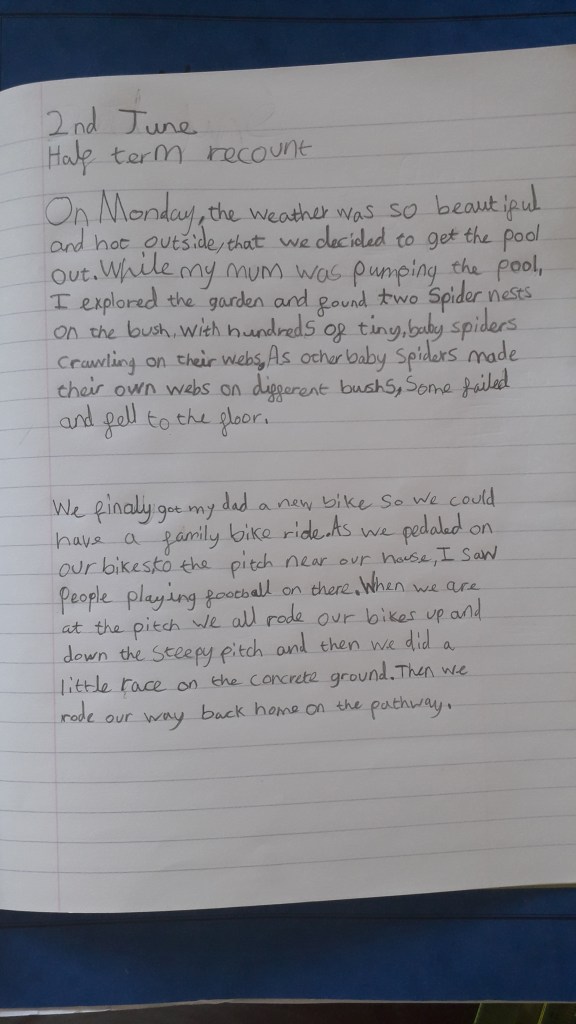 2nd June
Half term recount
On Monday, the weather was so beautiful
and hot outside, that we decided to get the pool
out. While my mum was pumping the pool,
I explored the garden and found two Spider nests
on the bush. with hundreds of tiny, baby spiders
crawling on their webs, As other baby Spiders made
their own webs on different bushs, Some failed
and fell to the floor.
We finaly got my dad a new bike so we could
have a family bike ride. As we pedaled on
our bikes to the pitch near our house, I saw
People playing football on there. When we are
at the pitch we all rode our bikes up and
down the Steepy pitch and then we did a
little race on the concrete ground. Then we
rode our way back home on the pathway.